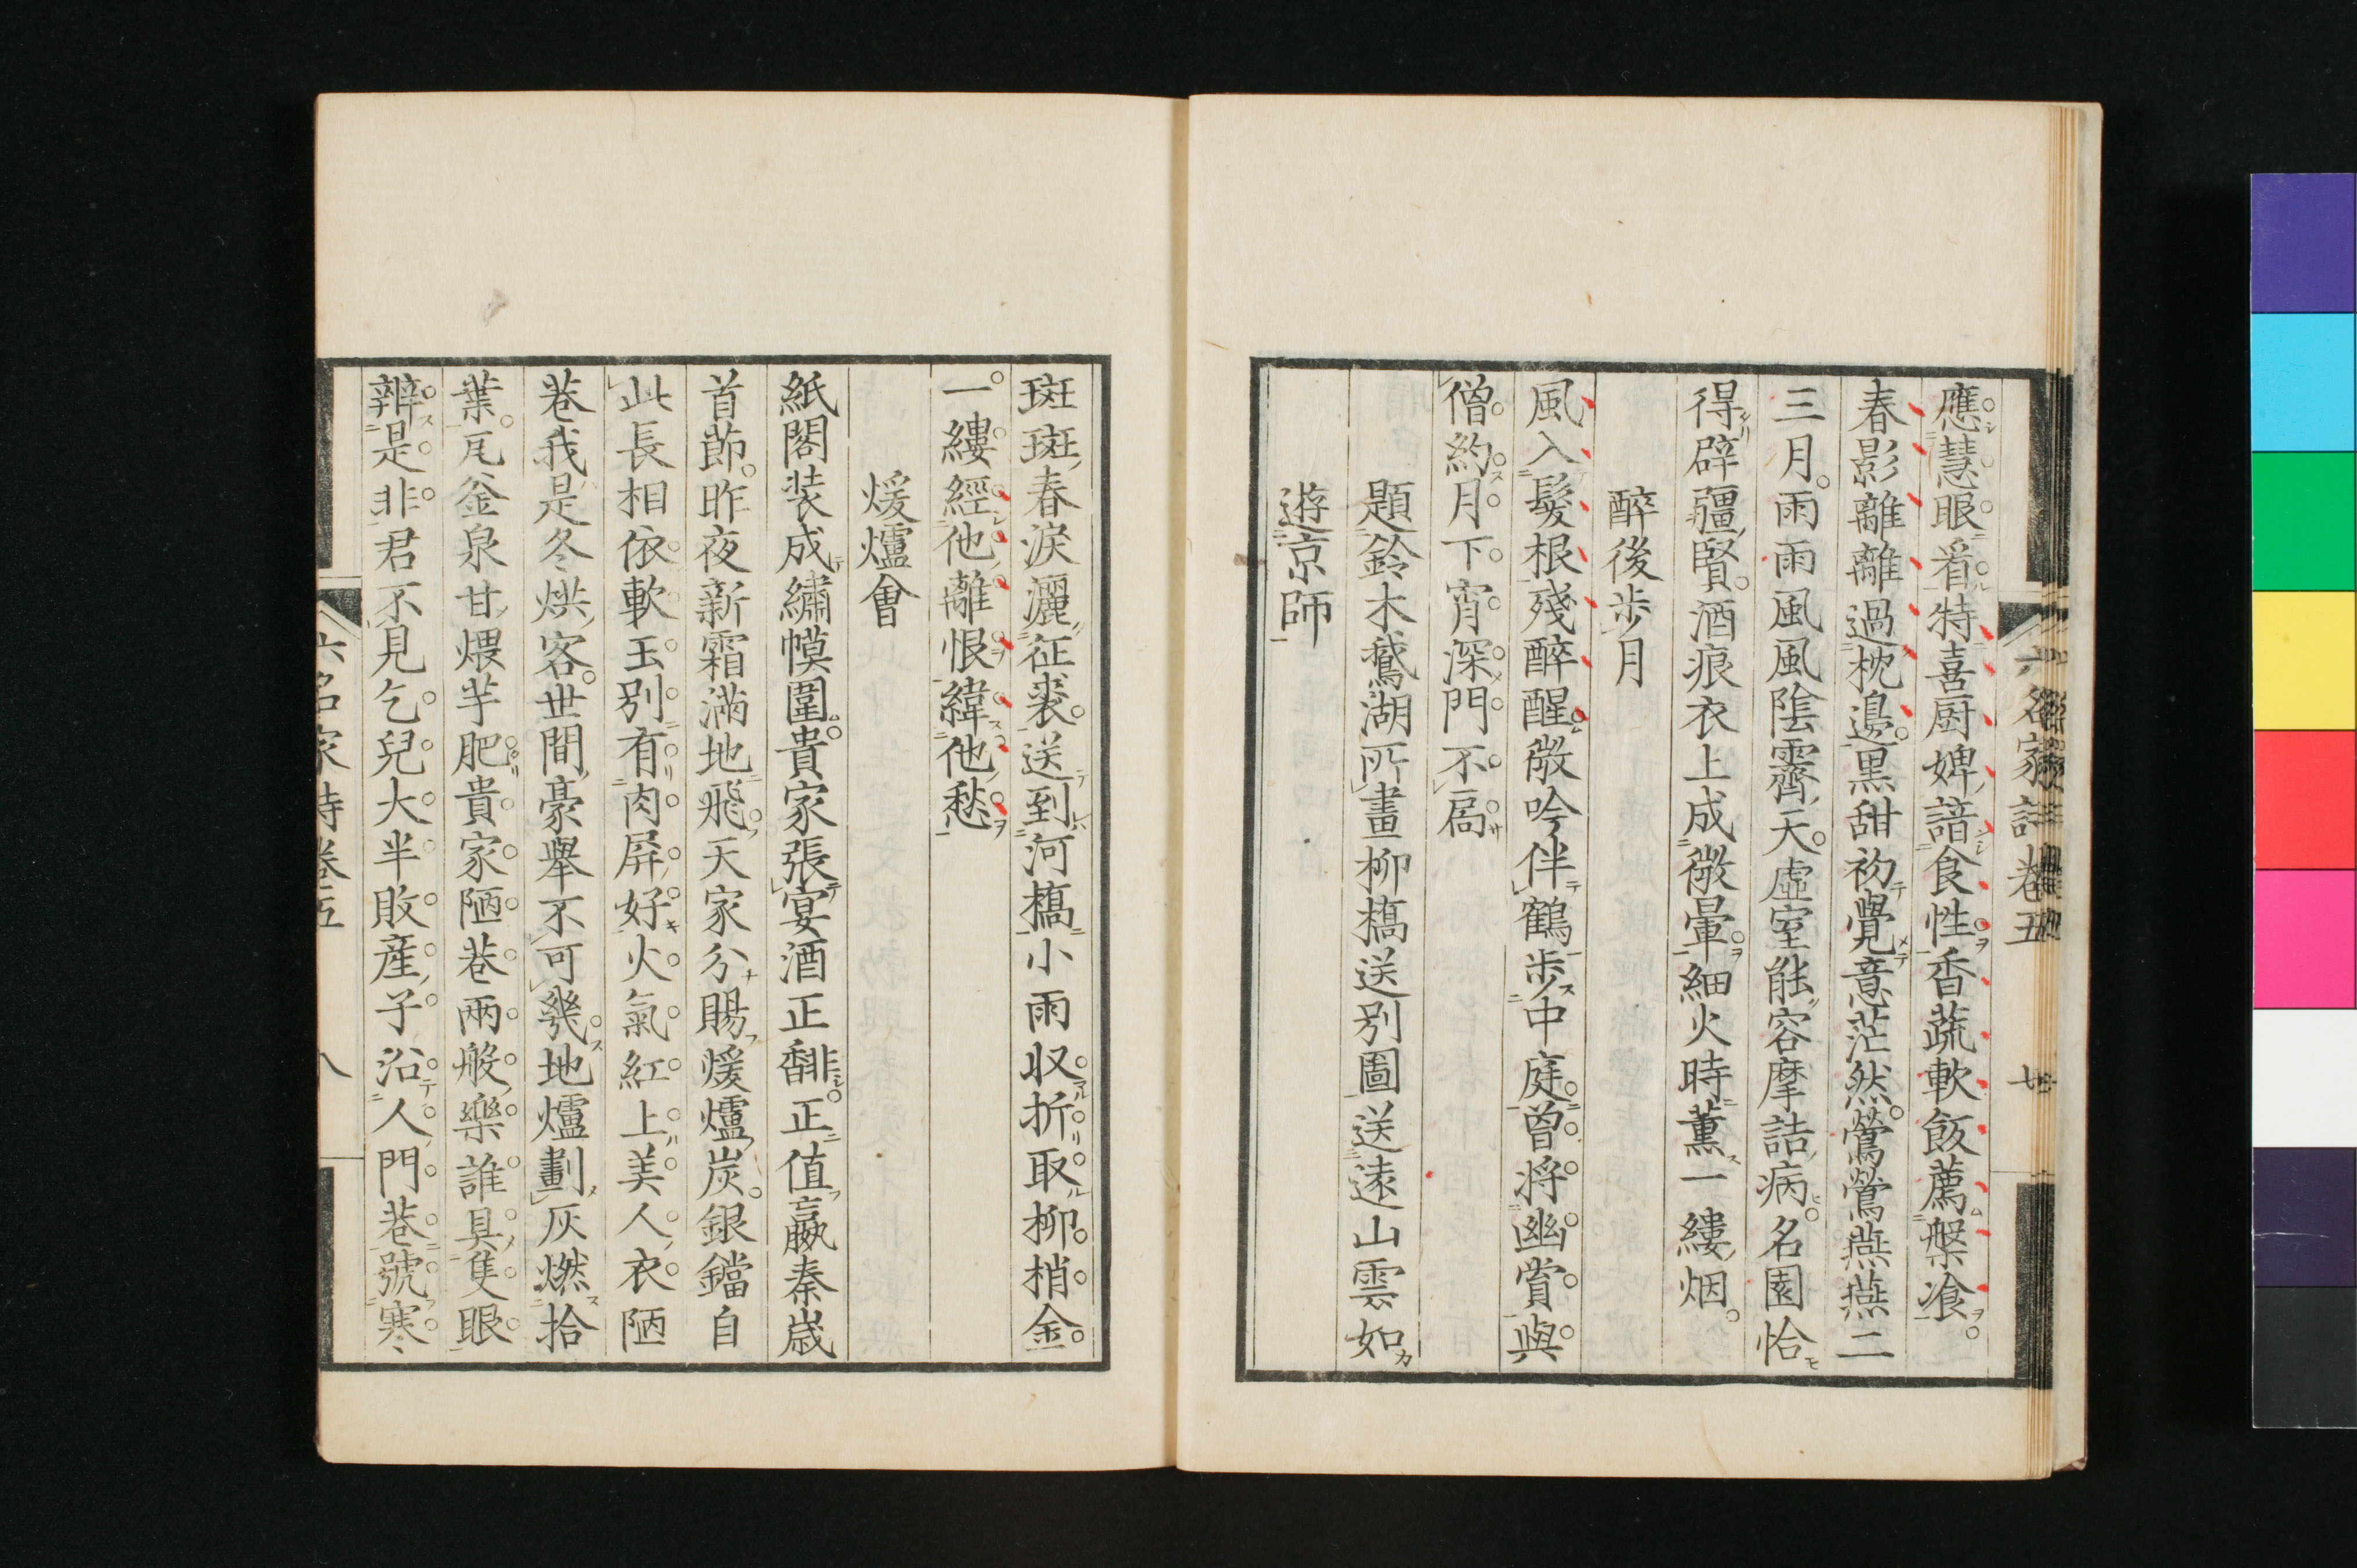 六名家詩巻五 七
應慧眼看特喜厨婢諳食性香蔬軟飯薦槃飡
春影離離過枕邉黒甜初覺意茫然鶯鶯燕燕二
三月雨雨風風陰霽天虚室能容摩詰病名園恰
得辟疆賢酒痕衣上成微暈細火時薫一縷烟
醉後歩月
風入髮根殘醉醒微吟伴鶴歩中庭曽將幽賞與
僧約月下宵深門不扃
題鈴木鵞湖所畫柳橋送別圖送遠山雲如
遊京師
斑斑春涙灑征裘送到河橋小雨収折取柳梢金
一縷經他離恨緯他愁
煖爐會
紙閣装成繡幙圍貴家張宴酒正馡正值嬴秦嵗
首莭昨夜新霜滿地飛天家分賜煖爐炭銀鐺自
此長相依軟玉別有肉屏好火氣紅上美人衣陋
巷我是冬烘客世間豪舉不可幾地爐劃灰燃拾
葉瓦釜泉甘煨芋肥貴家陋巷兩般樂誰具隻眼
辨是非君不見乞兒大半敗産子沿人門巷號寒
六名家詩巻五 八